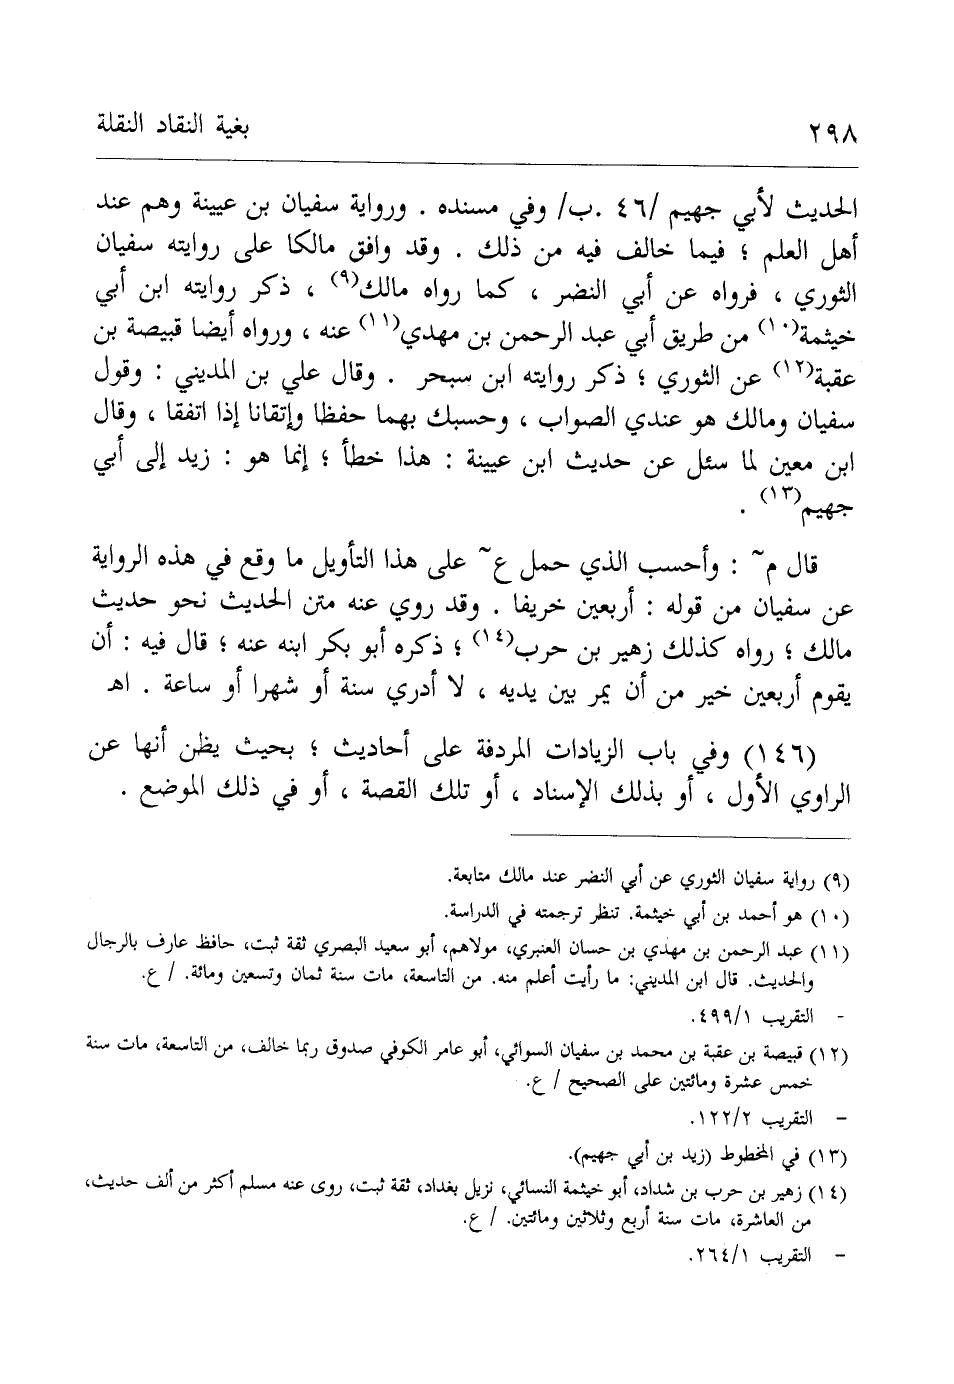 ٢٩٨ بغية النقاد النقلة
الحديث لأبي جهيم /٤٦ .ب/ وفي مسنده . ورواية سفيان بن عيينة وهم عند
أهل العلم ؛ فيما خالف فيه من ذلك . وقد وافق مالكا على روايته سفيان
الثوري ، فرواه عن أبي النضر ، كما رواه مالك(٩) ، ذكر روايته ابن أبي
خيثمة(١٠) من طريق أبي عبد الرحمن بن مهدي(١١) عنه ، ورواه أيضا قبيصة بن
عقبة(١٢) عن الثوري ؛ ذكر روايته ابن سبحر . وقال علي بن المديني : وقول
سفيان ومالك هو عندي الصواب ، وحسبك بهما حفظا وإتقانا إذا اتفقا ، وقال
ابن معين لما سئل عن حديث ابن عيينة : هذا خطأ ؛ إنما هو : زيد إلى أبي
جهيم(١٣) .
قال م~ : وأحسب الذي حمل ع~ على هذا التأويل ما وقع في هذه الرواية
عن سفيان من قوله : أربعين خريفا . وقد روي عنه متن الحديث نحو حديث
مالك ؛ رواه كذلك زهير بن حرب(١٤) ؛ ذكره أبو بكر ابنه عنه ؛ قال فيه : أن
يقوم أربعين خير من أن يمر بين يديه ، لا أدري سنة أو شهرا أو ساعة . اهـ
(١٤٦) وفي باب الزيادات المردفة على أحاديث ؛ بحيث يظن أنها عن
الراوي الأول ، أو بذلك الإسناد ، أو تلك القصة ، أو في ذلك الموضع .
(٩) رواية سفيان الثوري عن أبي النضر عند مالك متابعة.
(١٠) هو أحمد بن أبي خيثمة. تنظر ترجمته في الدراسة.
(١١) عبد الرحمن بن مهدي بن حسان العنبري، مولاهم، أبو سعيد البصري ثقة ثبت، حافظ عارف بالرجال
والحديث. قال ابن المديني: ما رأيت أعلم منه. من التاسعة، مات سنة ثمان وتسعين ومائة. / ع.
- التقريب ٤٩٩/١.
(١٢) قبيصة بن عقبة بن محمد بن سفيان السوائي، أبو عامر الكوفي صدوق ربما خالف، من التاسعة، مات سنة
خمس عشرة ومائتين على الصحيح / ع.
- التقريب ١٢٢/٢.
(١٣) في المخطوط (زيد بن أبي جهيم).
(١٤) زهير بن حرب بن شداد، أبو خيثمة النسائي، نزيل بغداد، ثقة ثبت، روى عنه مسلم أكثر من ألف حديث،
من العاشرة، مات سنة أربع وثلاثين ومائتين. / ع.
- التقريب ٢٦٤/١.